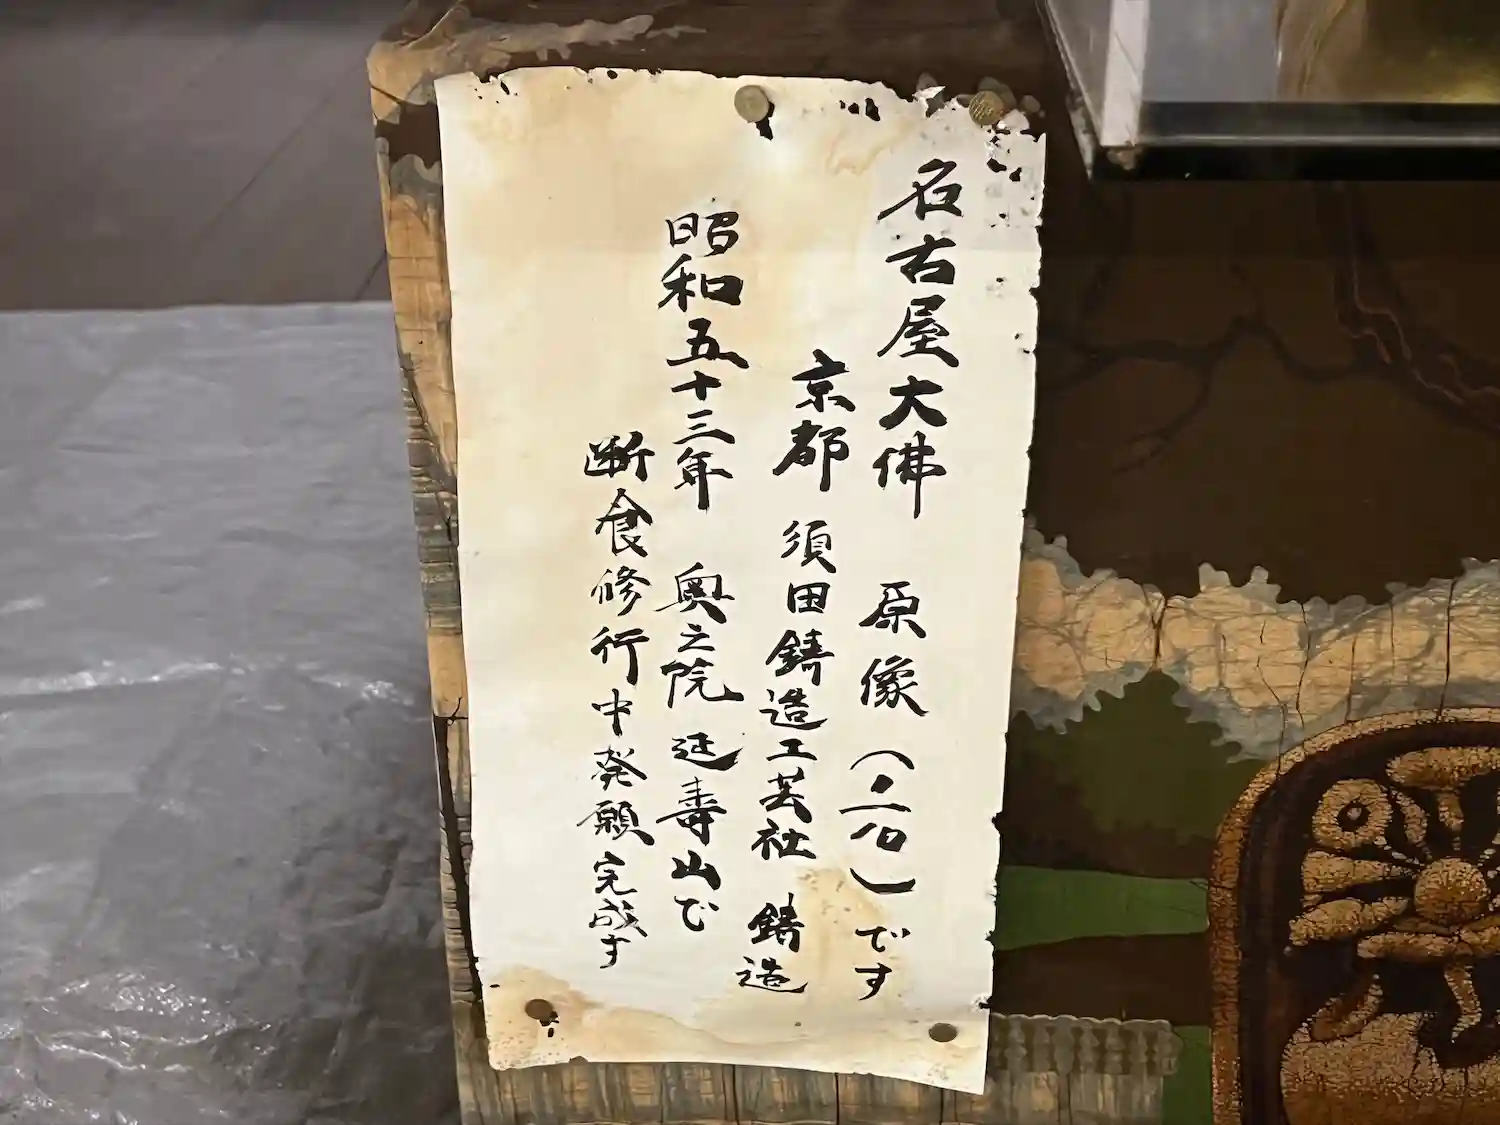 名古屋大佛 原像(1/10)です
京都 須田鋳造工芸社 鋳造
昭和五十三年 奥之院 延寿山で
断食修行中発願完成す